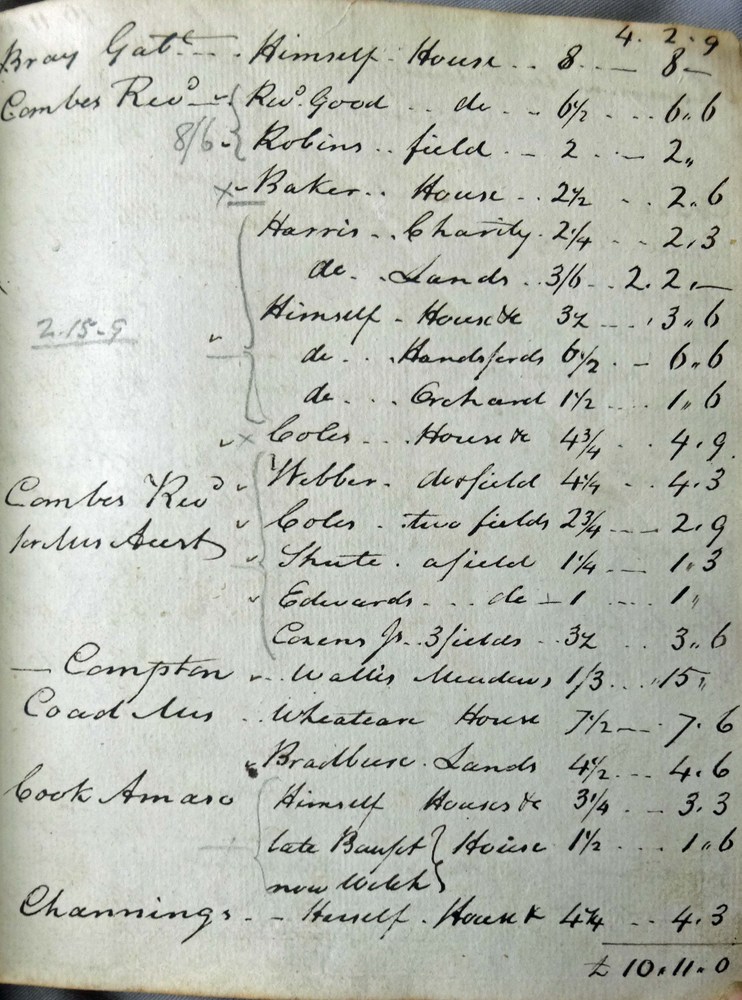 4. 2. 9
Bray Gab.t — . Himself House .. 8. — 8 —
Combes Rev.d — Rev.d Good .. do .. 6½ ... 6,, 6
8/6 Robins .. field .. 2 ... 2,,
x Baker .. House .. 2½ .. 2,, 6
Harris .. Charity . 2¼ .. 2. 3
do .. Lands .. 3/6 .. 2. 2. —
Himself . House &c 3½ ... 3,, 6
2.15.9
do ... Handsfords 6½ .. 6,, 6
do ... Orchard 1½ ... 1,, 6
x Coles ... House &c 4¾ .. 4. 9.
Webber . do field 4¼ .. 4. 3
Combes Rev.d
for Mrs Coles . two fields 2¾ ... 2. 9
Shute . a field 1¼ ... 1,, 3
Edwards ... do — 1 ... 1,,
Cozens Jr. 3 fields .. 3½ .. 3,, 6
— Compton .. Wallis Meadows 1/3 ... ,,15,,
Coad Mrs .. House 7½ — . 7. 6
Lands 4½ ... 4. 6
Cook Amaso Himself Houses &c 3¼ .. 3. 3
late } House 1½ ... 1,, 6
now Welch
Channings .. Herself . House &c 4¼ .. 4. 3
£ 10. 11. 0